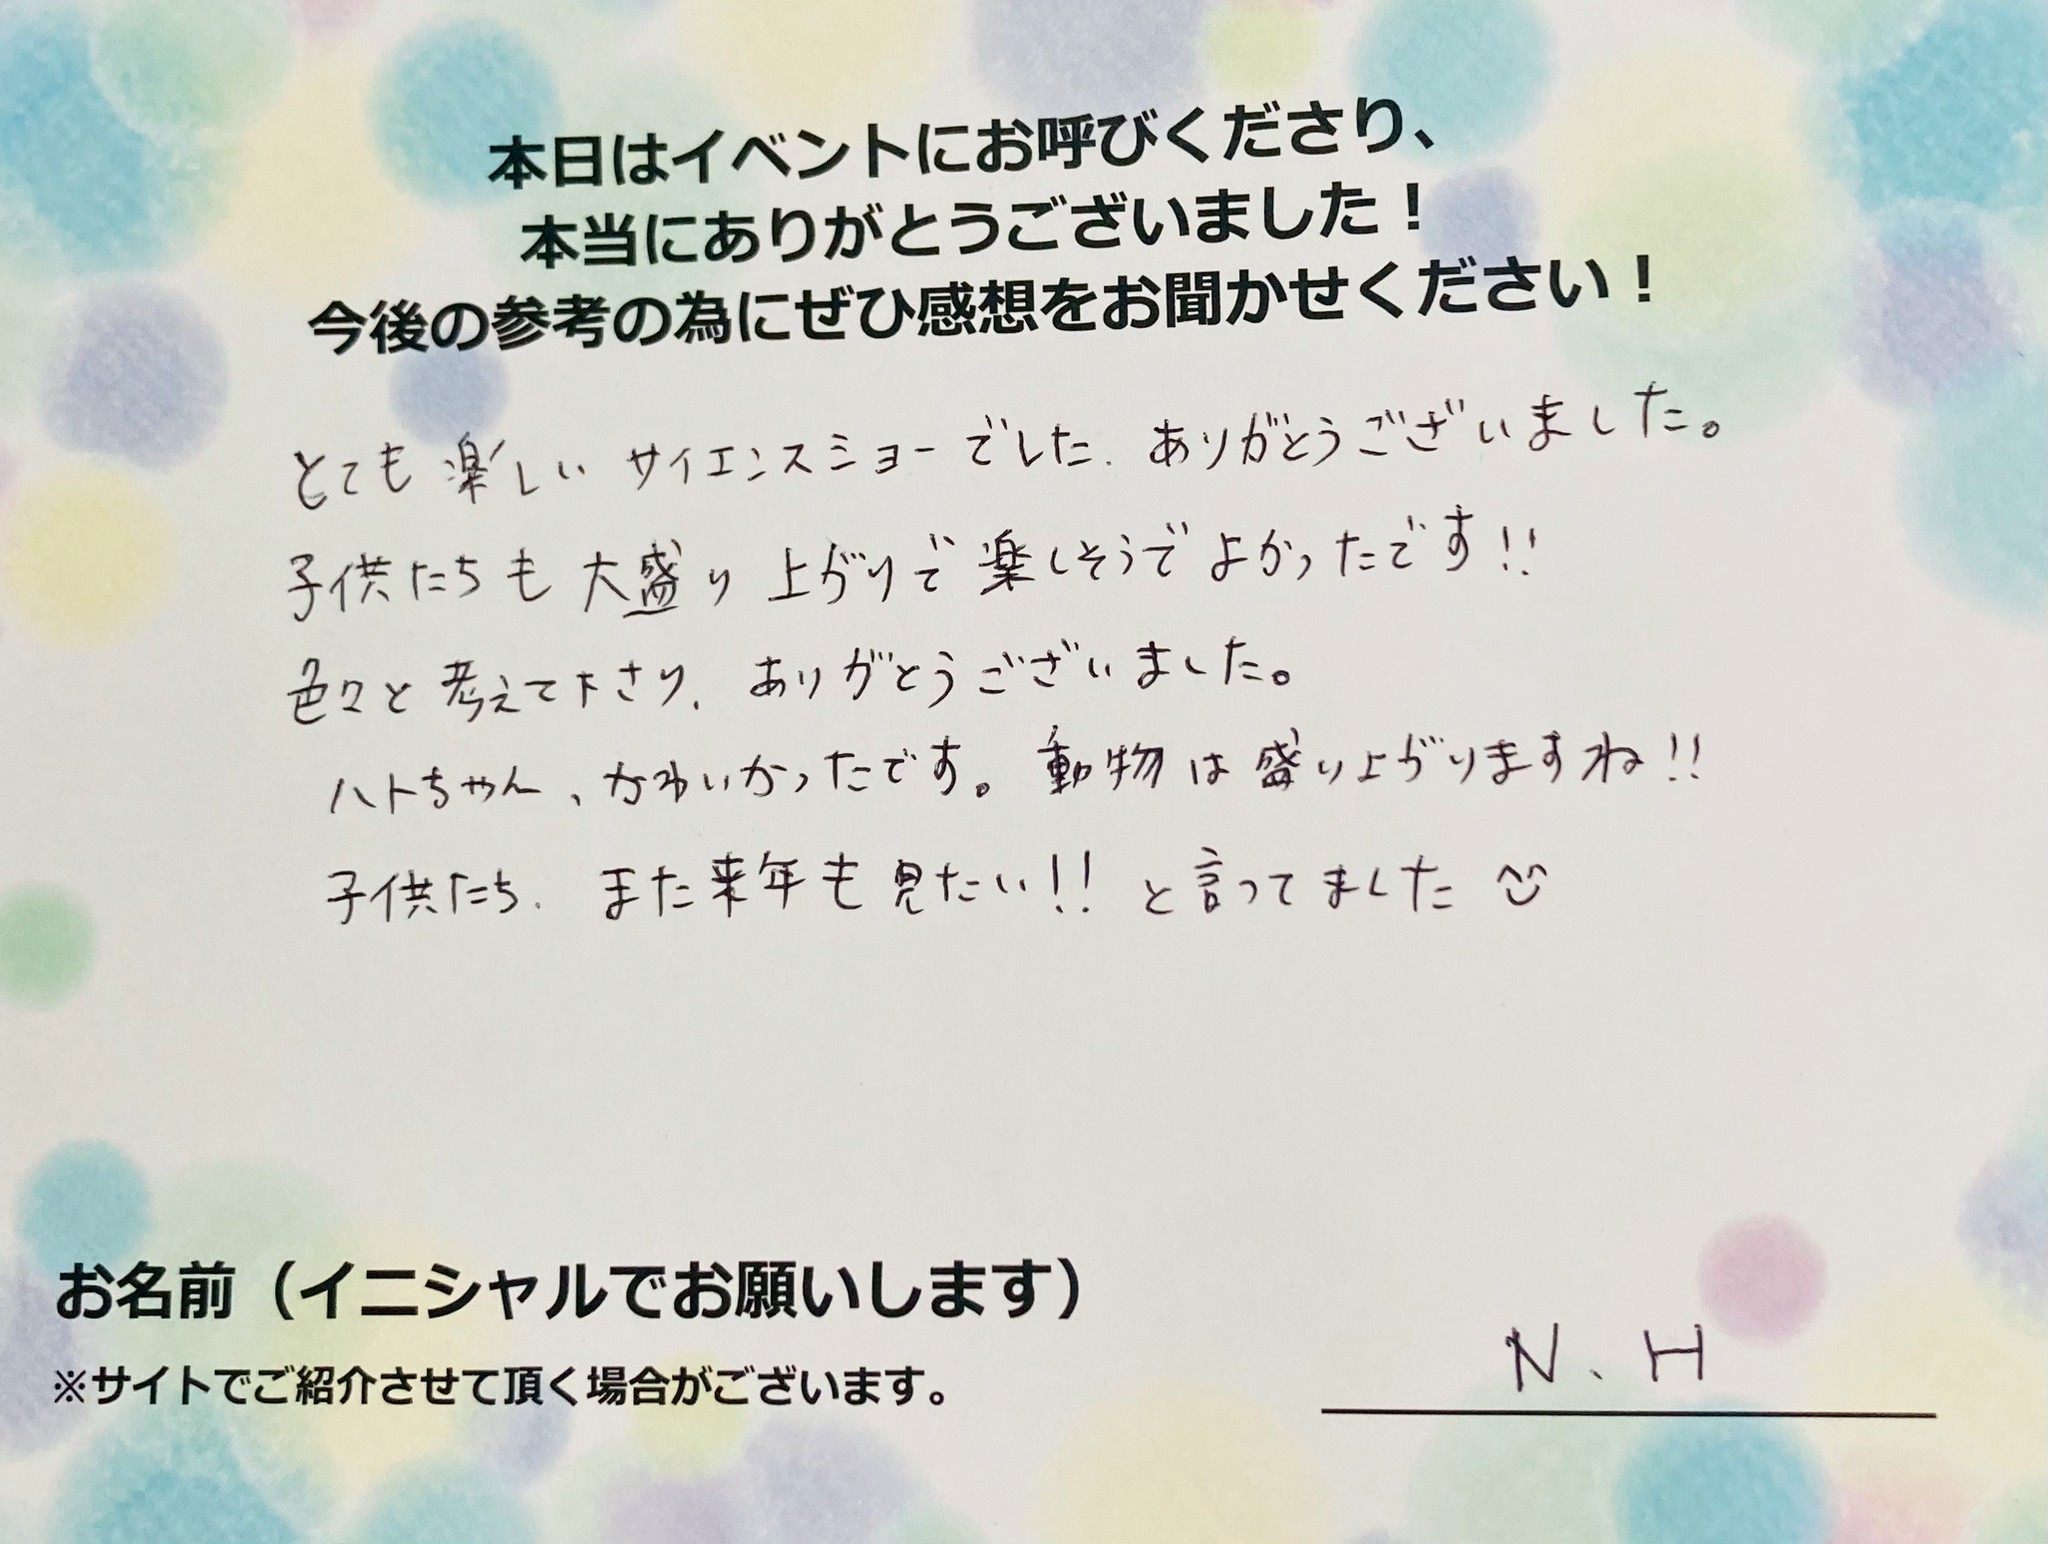 本日はイベントにお呼びくださり、
本当にありがとうございました！
今後の参考の為にぜひ感想をお聞かせください！
とても楽しいサイエンスショーでした. ありがとうございました。
子供たちも大盛り上がりで楽しそうでよかったです!!
色々と考えて下さり、ありがとうございました。
ハトちゃん、かわいかったです。動物は盛り上がりますね!!
子供たち、また来年も見たい!! と言ってました
お名前（イニシャルでお願いします）
※サイトでご紹介させて頂く場合がございます。
N.H